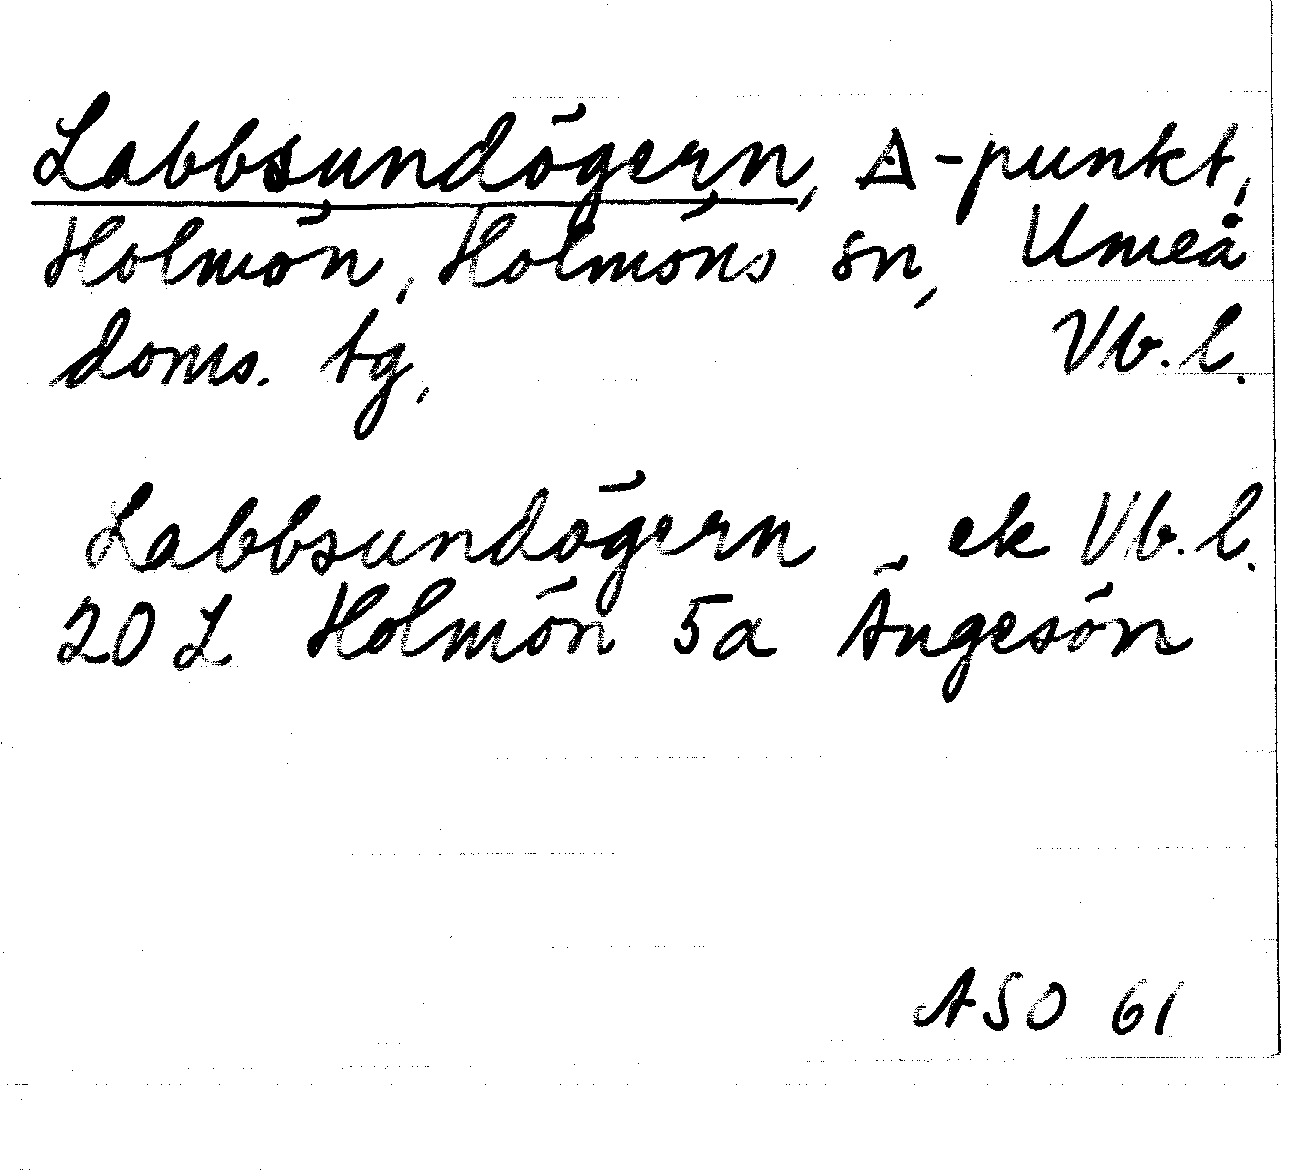 Labbsundögern, ∆-punkt,
Holmön, Holmöns sn, Umeå
doms. tg, Vb. l.
Labbsundögern, ek Vb. l.
20 L Holmön 5a Ängesön
ASO 61